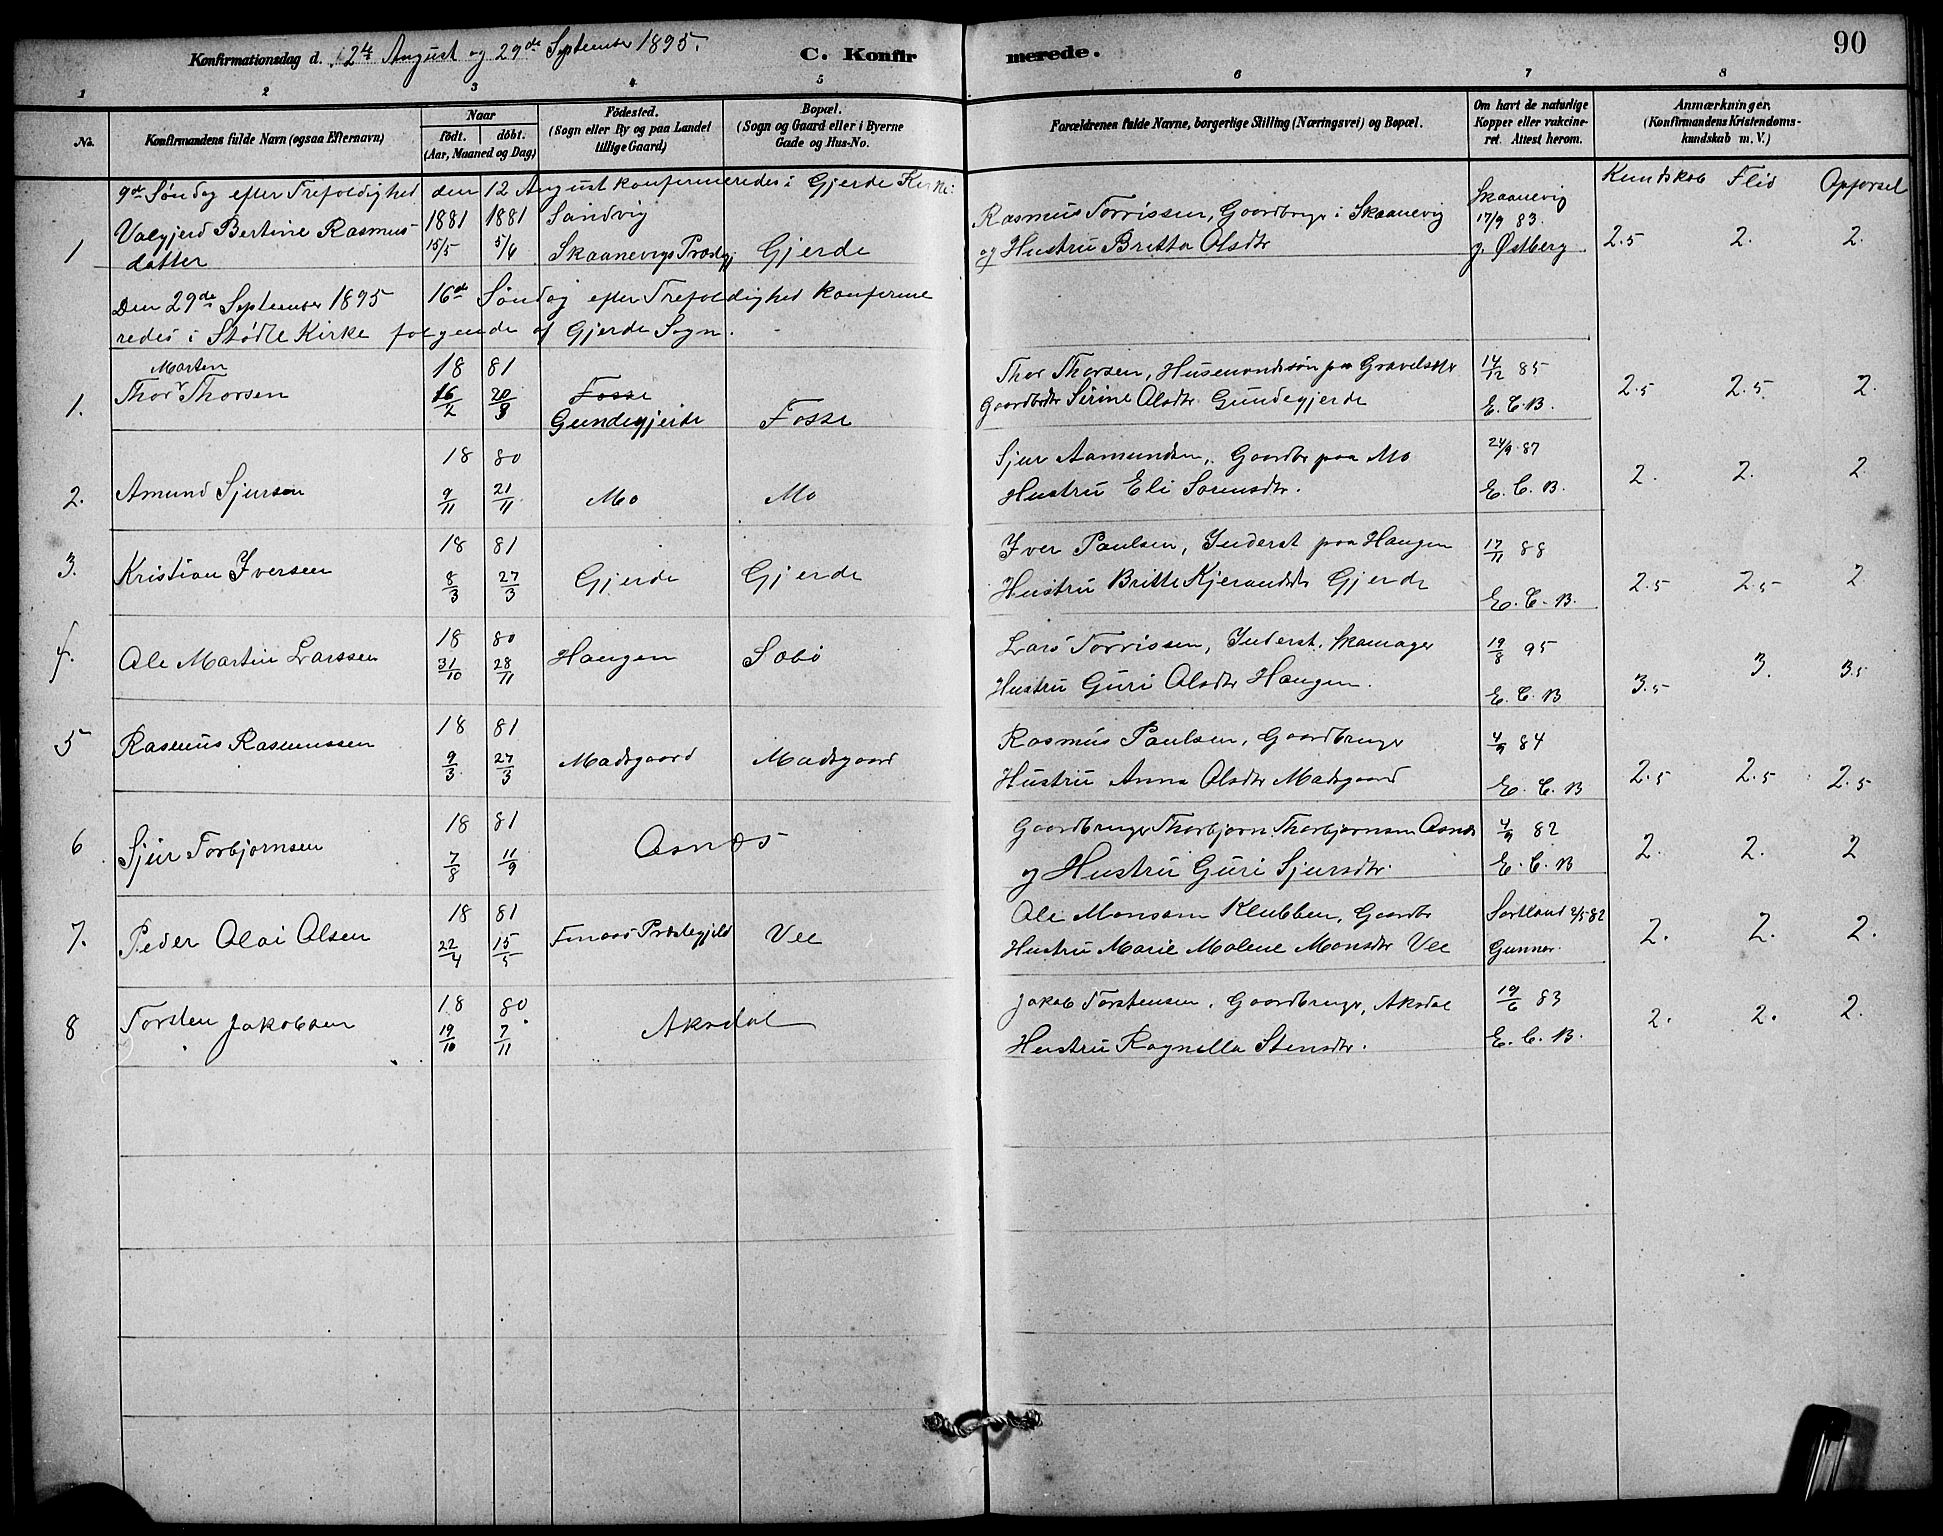 90
Konfirmationsdag d. 12te August og 29de September 1895.
C. Konfirmerede.
1 2 3 4 5 6 7 8
No.
Konfirmandens fulde Navn (ogsaa Efternavn)
Naar
født. døbt.
(Aar, Maaned og Dag)
Fødested.
(Sogn eller By og paa Landet
tillige Gaard)
Bopæl.
(Sogn og Gaard eller i Byerne
Gade og Hus-No.
Forældrenes fulde Navne, borgerlige Stilling (Næringsvei) og Bopæl.
Om havt de naturlige
Kopper eller vakcine-
ret. Attest herom.
Anmærkninger,
(Konfirmandens Kristendoms-
kundskab m. V.)
Kundskab Flid Opførsel
9de Søndag efter Trefoldighed den 12 August konfirmeredes i Gjerde Kirke:
1 Valgjerd Bertine Rasmus- 1881 1881 Sandvig Rasmus Torrissen, Gaardbruger i Skaanevig Skaanevig 17/9 83.
datter 15/5 5/6 Skaanevigs Præstegj. Gjerde og Hustru Britta Olsdtr g. Østberg 2.5 2. 2.
Den 29de September 1895 16de Søndag efter Trefoldighed konfirme
redes i Stødle Kirke følgende af Gjerde Sogn.
Morten 18 81 Thor Thorsen, Husemandssøn paa Gravelsæter 14/12 85
1. Thor Thorsen 16/2 20/3 Fosse Gaardbrdtr Serine Olsdtr Gundegjerde E. C. B. 2.5 2.5. 2.
Gundegjerde Fosse
18 80 Sjur Aamundsen, Gaardbr paa Mo 24/9 87
2. Amund Sjursen 9/11 21/11 Mo Mo Hustru Eli Sørensdtr. E. C. B. 2. 2. 2
18 81 Iver Paulsen, Inderst paa Haugen 17/11 88
3. Kristian Iversen 8/3 27/3 Gjerde Gjerde Hustru Britte Kjerandsdtr Gjerde E. C. B. 2.5 2.5 2
18 80 Lars Torrissen, Inderst, Skomager 19/8 95
4. Ole Martin Larssen 31/10 28/11 Haugen Søbø Hustru Guri Olsdtr Haugen. E. C. B 3.5 3. 3.5
18 81 Rasmus Paulsen, Gaardbruger 4/9 84
5 Rasmus Rasmussen 9/3 27/3 Madsgaard Madsgaard Hustru Anna Olsdtr Madsgaard E. C. B 2.5 2.5 2.5
18 81 Gaardbruger Thorbjørn Thorbjørnsen Osnes 4/9 82
6 Sjur Torbjørnsen 7/8 11/9 Osnes og Hustru Guri Sjursdtr. E. C. B 2. 2. 2
18 81 Ole Monsøen Klubben, Gaardbr Sortland 2/5 82
7. Peder Olai Olsen 22/4 15/5 Finaas Præstegjeld Vee Hustru Marie Malene Monsdtr Vee Gunner. 2. 2. 2.
18 80 Jakob Torstensen, Gaardbruger, Aksdal 19/6 83
8 Torsten Jakobsen 19/10 7/11 Aksdal Hustru Ragnilla Stensdtr. E. C. B. 2. 2. 2.